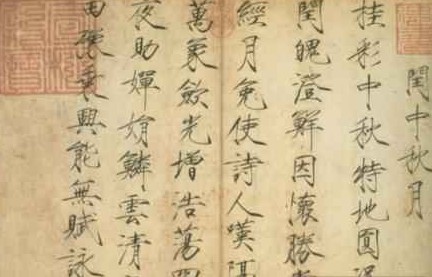 閏中秋月
桂彩中秋特地圓
閏魄澄鮮因懷勝
經月免使詩人嘆隔
萬象斂光增浩蕩
夜助嬋娟鱗雲清
田豁乘興能無賦詠